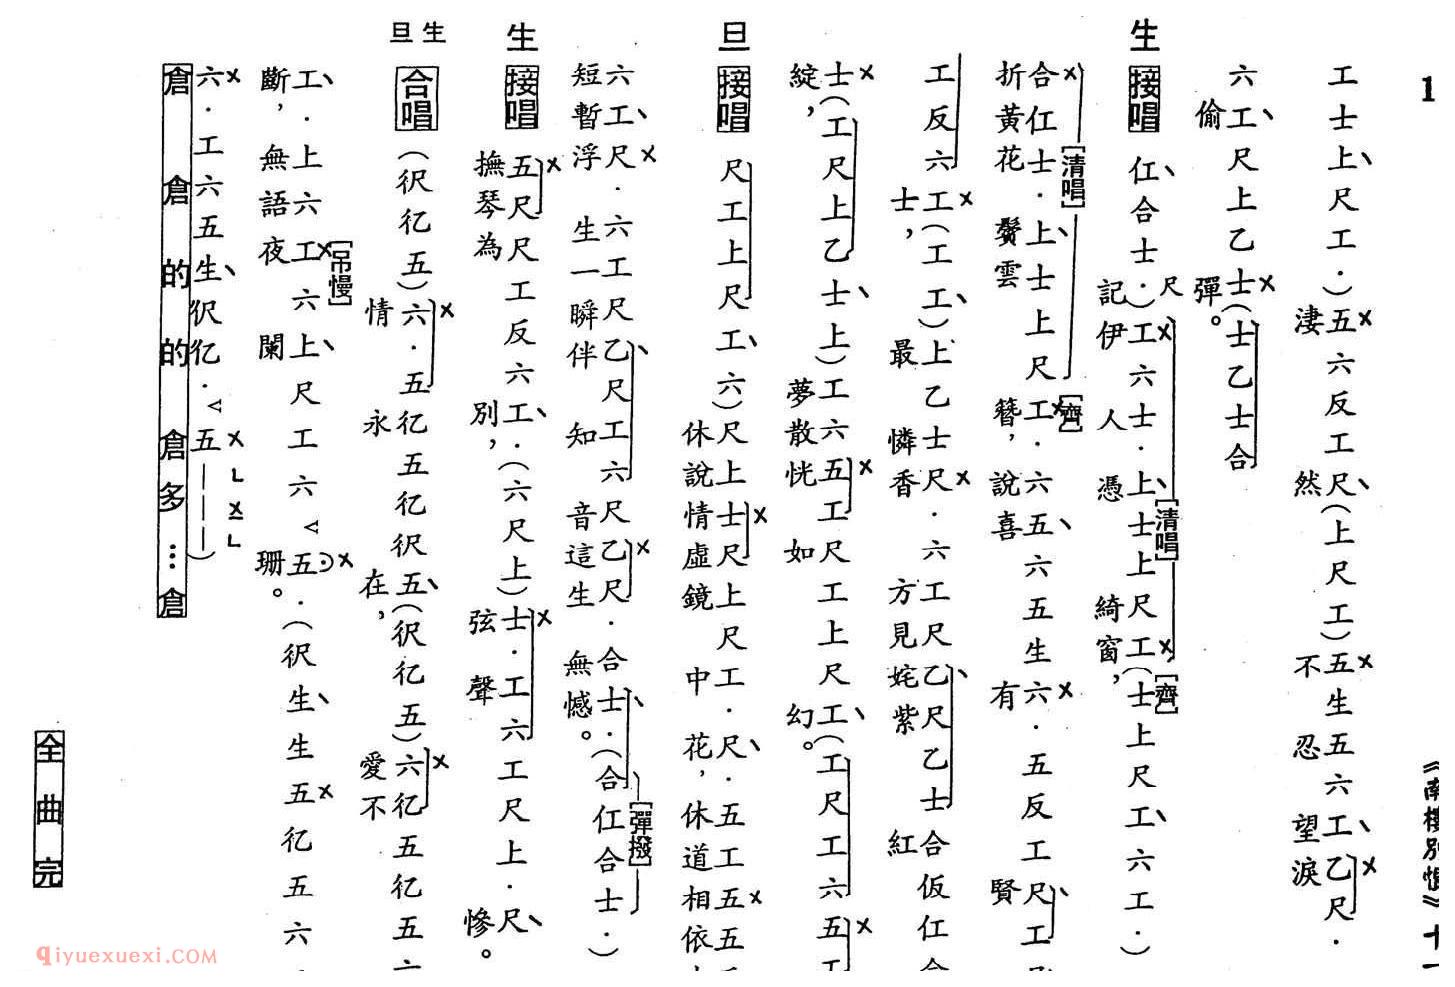 1
《南樓別恨》十一
工士上尺工．）五六反工尺（上尺工）五生五六工乙尺．
淒然不忍望淚
六工尺上乙士（士乙士合
偷彈。
生 接唱 仜合士．）工六士．上士上尺工（士上尺工六工．）
尺
記伊人憑綺窗，
［清唱］
［齊］
合仜士．上士上尺工．六五六五生六．五反工尺工
折黃花鬢雲簪，說喜有賢
［清唱］
［齊］
工反六工（工工）上乙士尺．六工尺乙尺乙士合仮仜合
士，最憐香方見姹紫紅
士（工尺上乙士上）工六五工尺工上尺工（工尺工六五工
綻，夢散恍如幻。
旦 接唱 尺工上尺工六）尺上士尺上尺工．尺．五工五五
休說情虛鏡中花，休道相依
六工尺．六工尺乙尺工六尺乙尺．合士．（合仜合士．）
短暫浮生一瞬伴知音這生無憾。
［彈撥］
生 接唱 五尺尺工反六工．（六尺上）士．工六工尺上．尺
撫琴為別，弦聲慘。
生旦 合唱 （伬亿五）六．五亿五亿伬五（伬亿五）六亿五亿五六
情永在，愛不
工．上六工六上尺工六五．（伬生生五亿五六．
斷，無語夜闌珊。
［吊慢］
六．工六五生伬亿．五———）
倉倉的的倉多…倉
全曲完
qiyuexuexi.COM